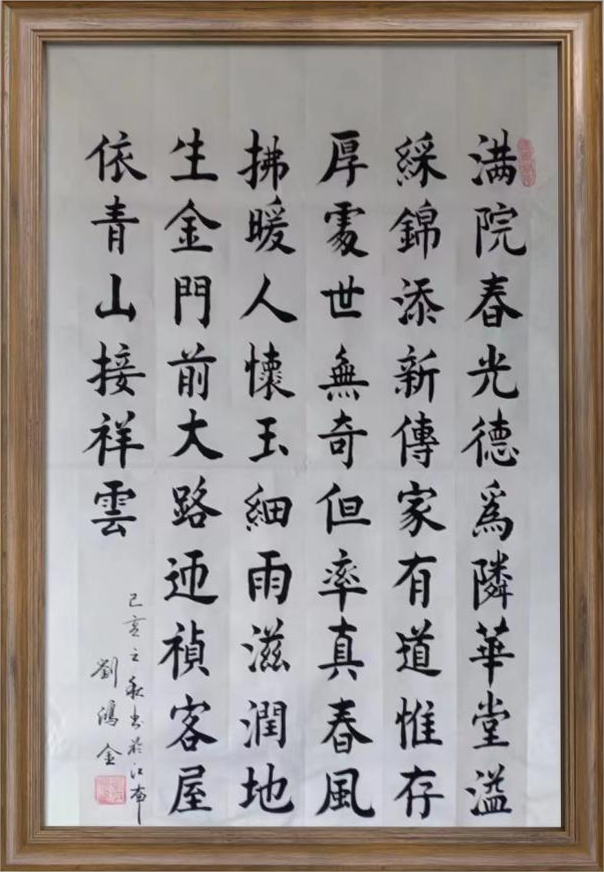 满院春光德爲隣華堂溢
綵錦添新傳家有道惟存
厚處世無奇但率真春風
拂暖人懷玉細雨滋潤地
生金門前大路迎禎客屋
依青山接祥雲
己亥之秋书於江南
劉鴻金